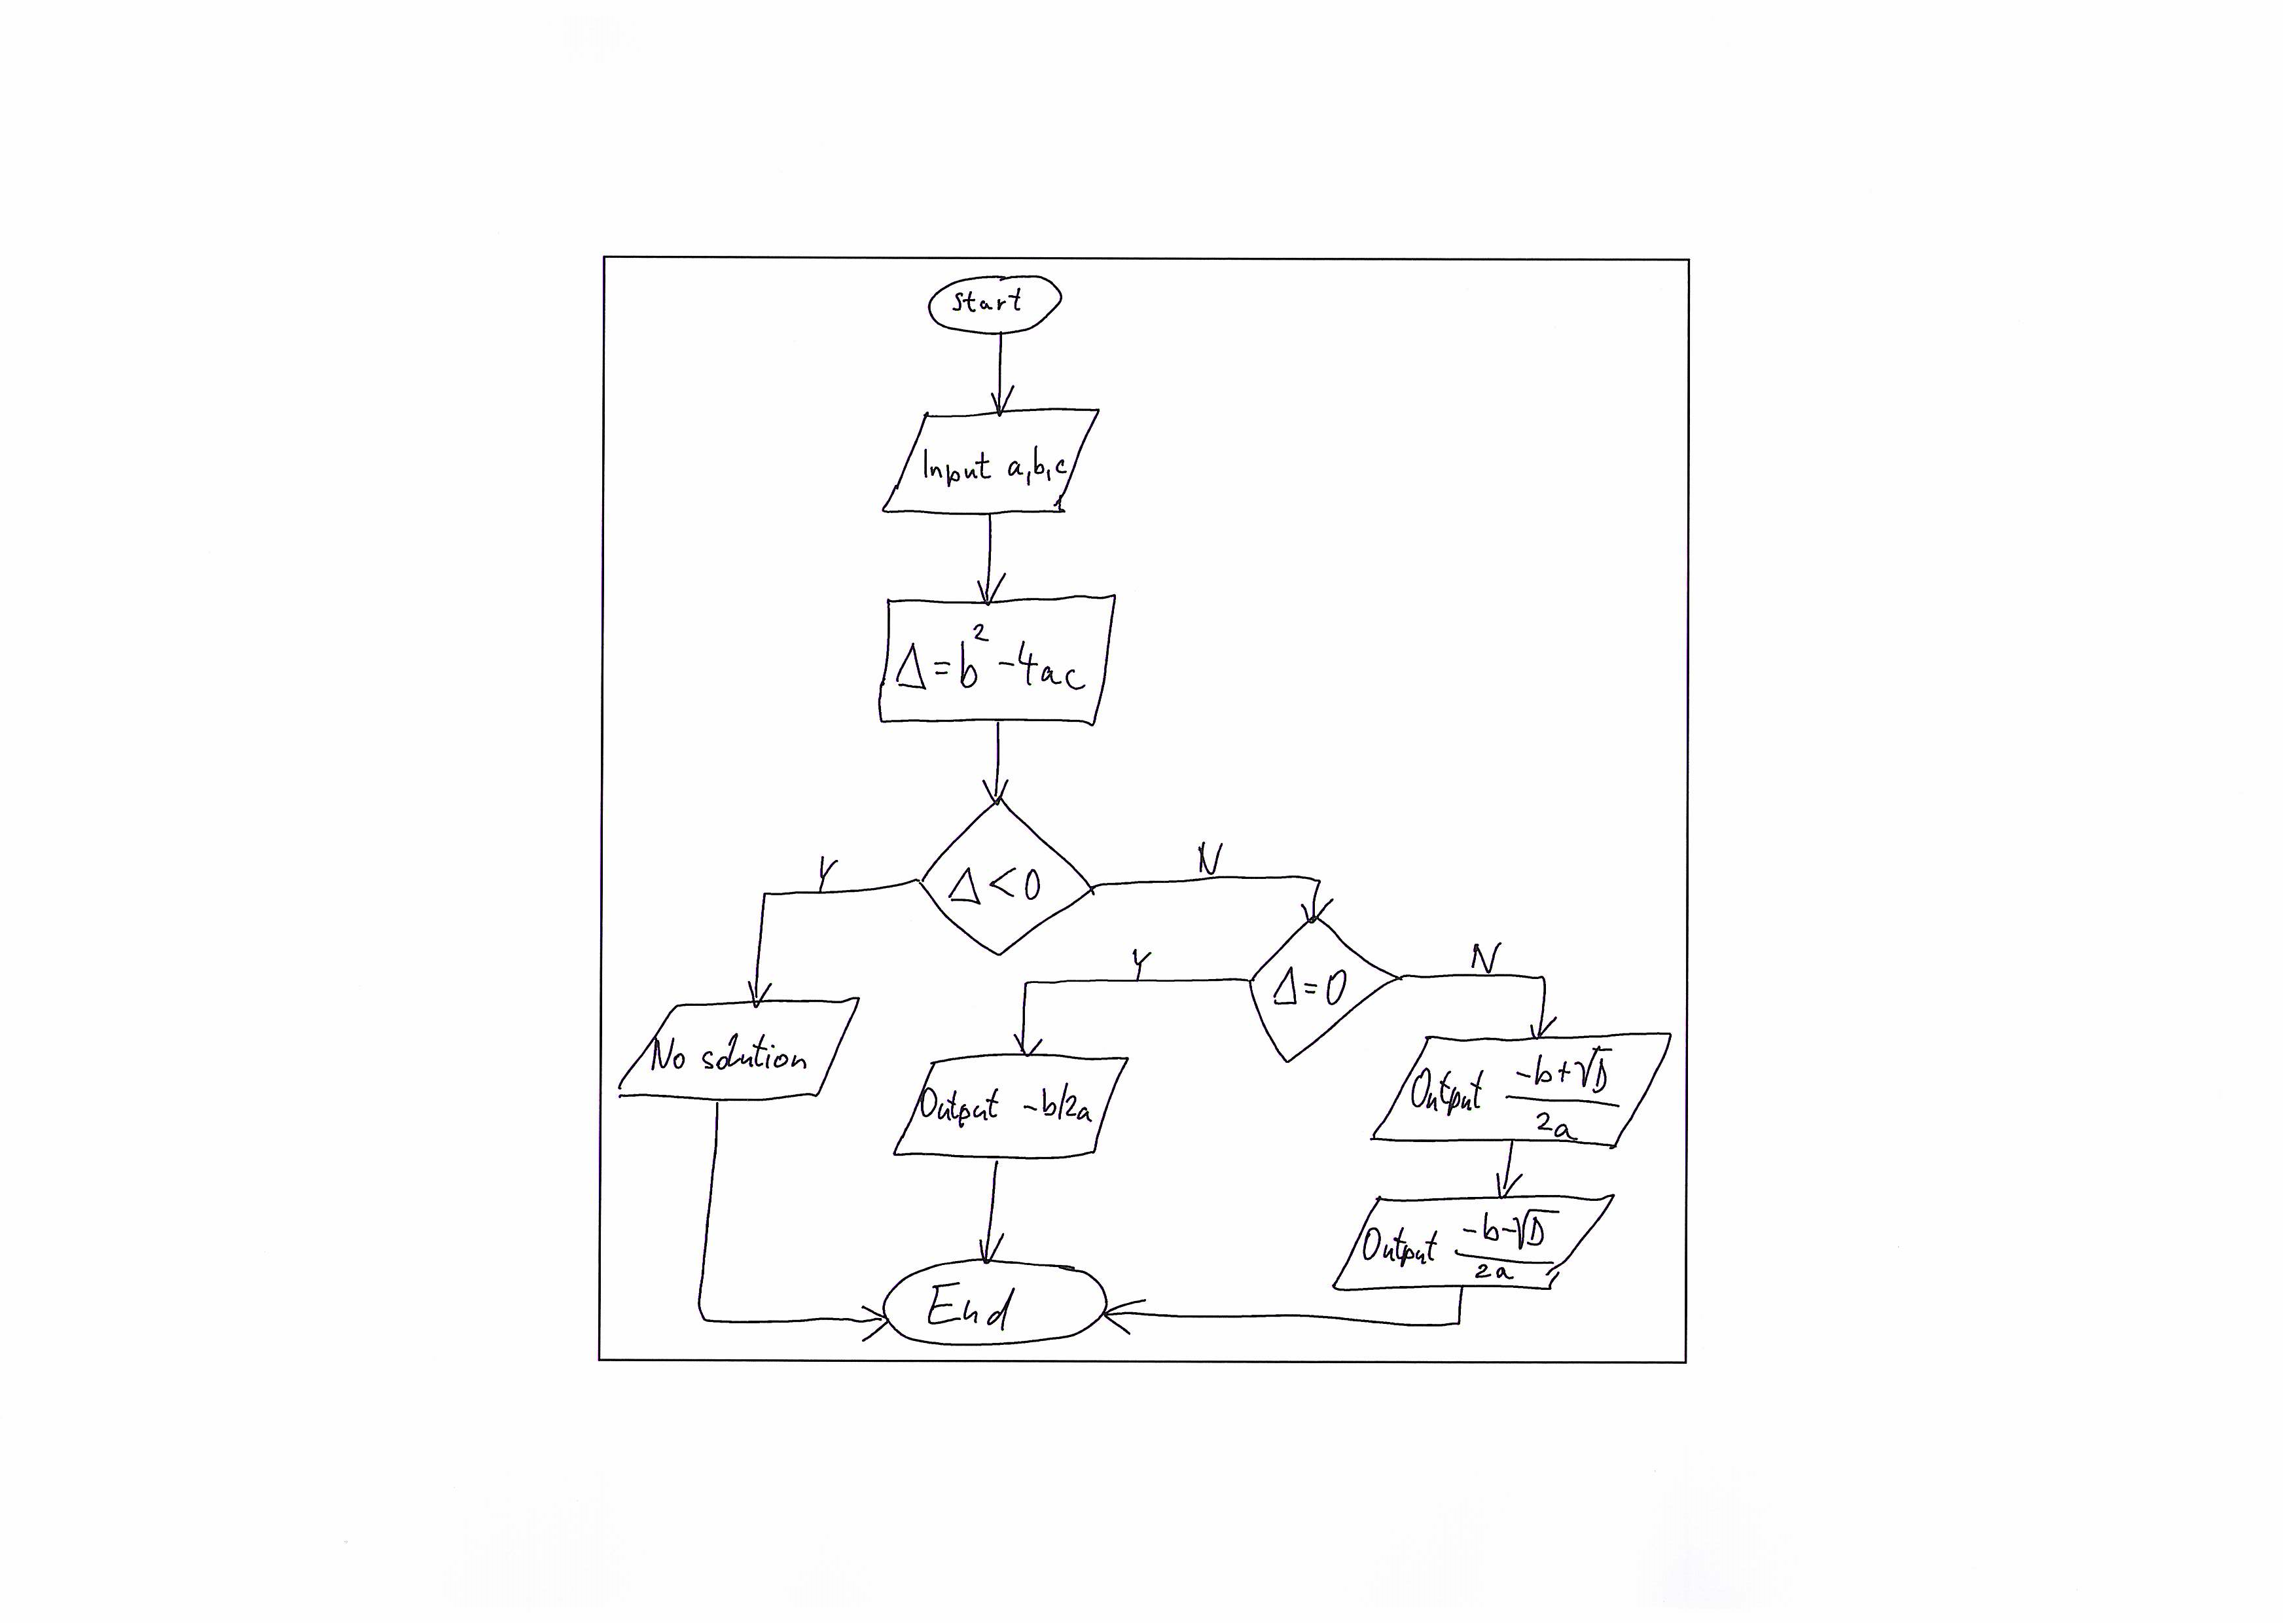 Start
Input a,b,c
Δ=b²-4ac
Δ<0
Y
N
Δ=0
Y
N
No solution
Output -b/2a
Output -b+√D
2a
Output -b-√D
2a
End